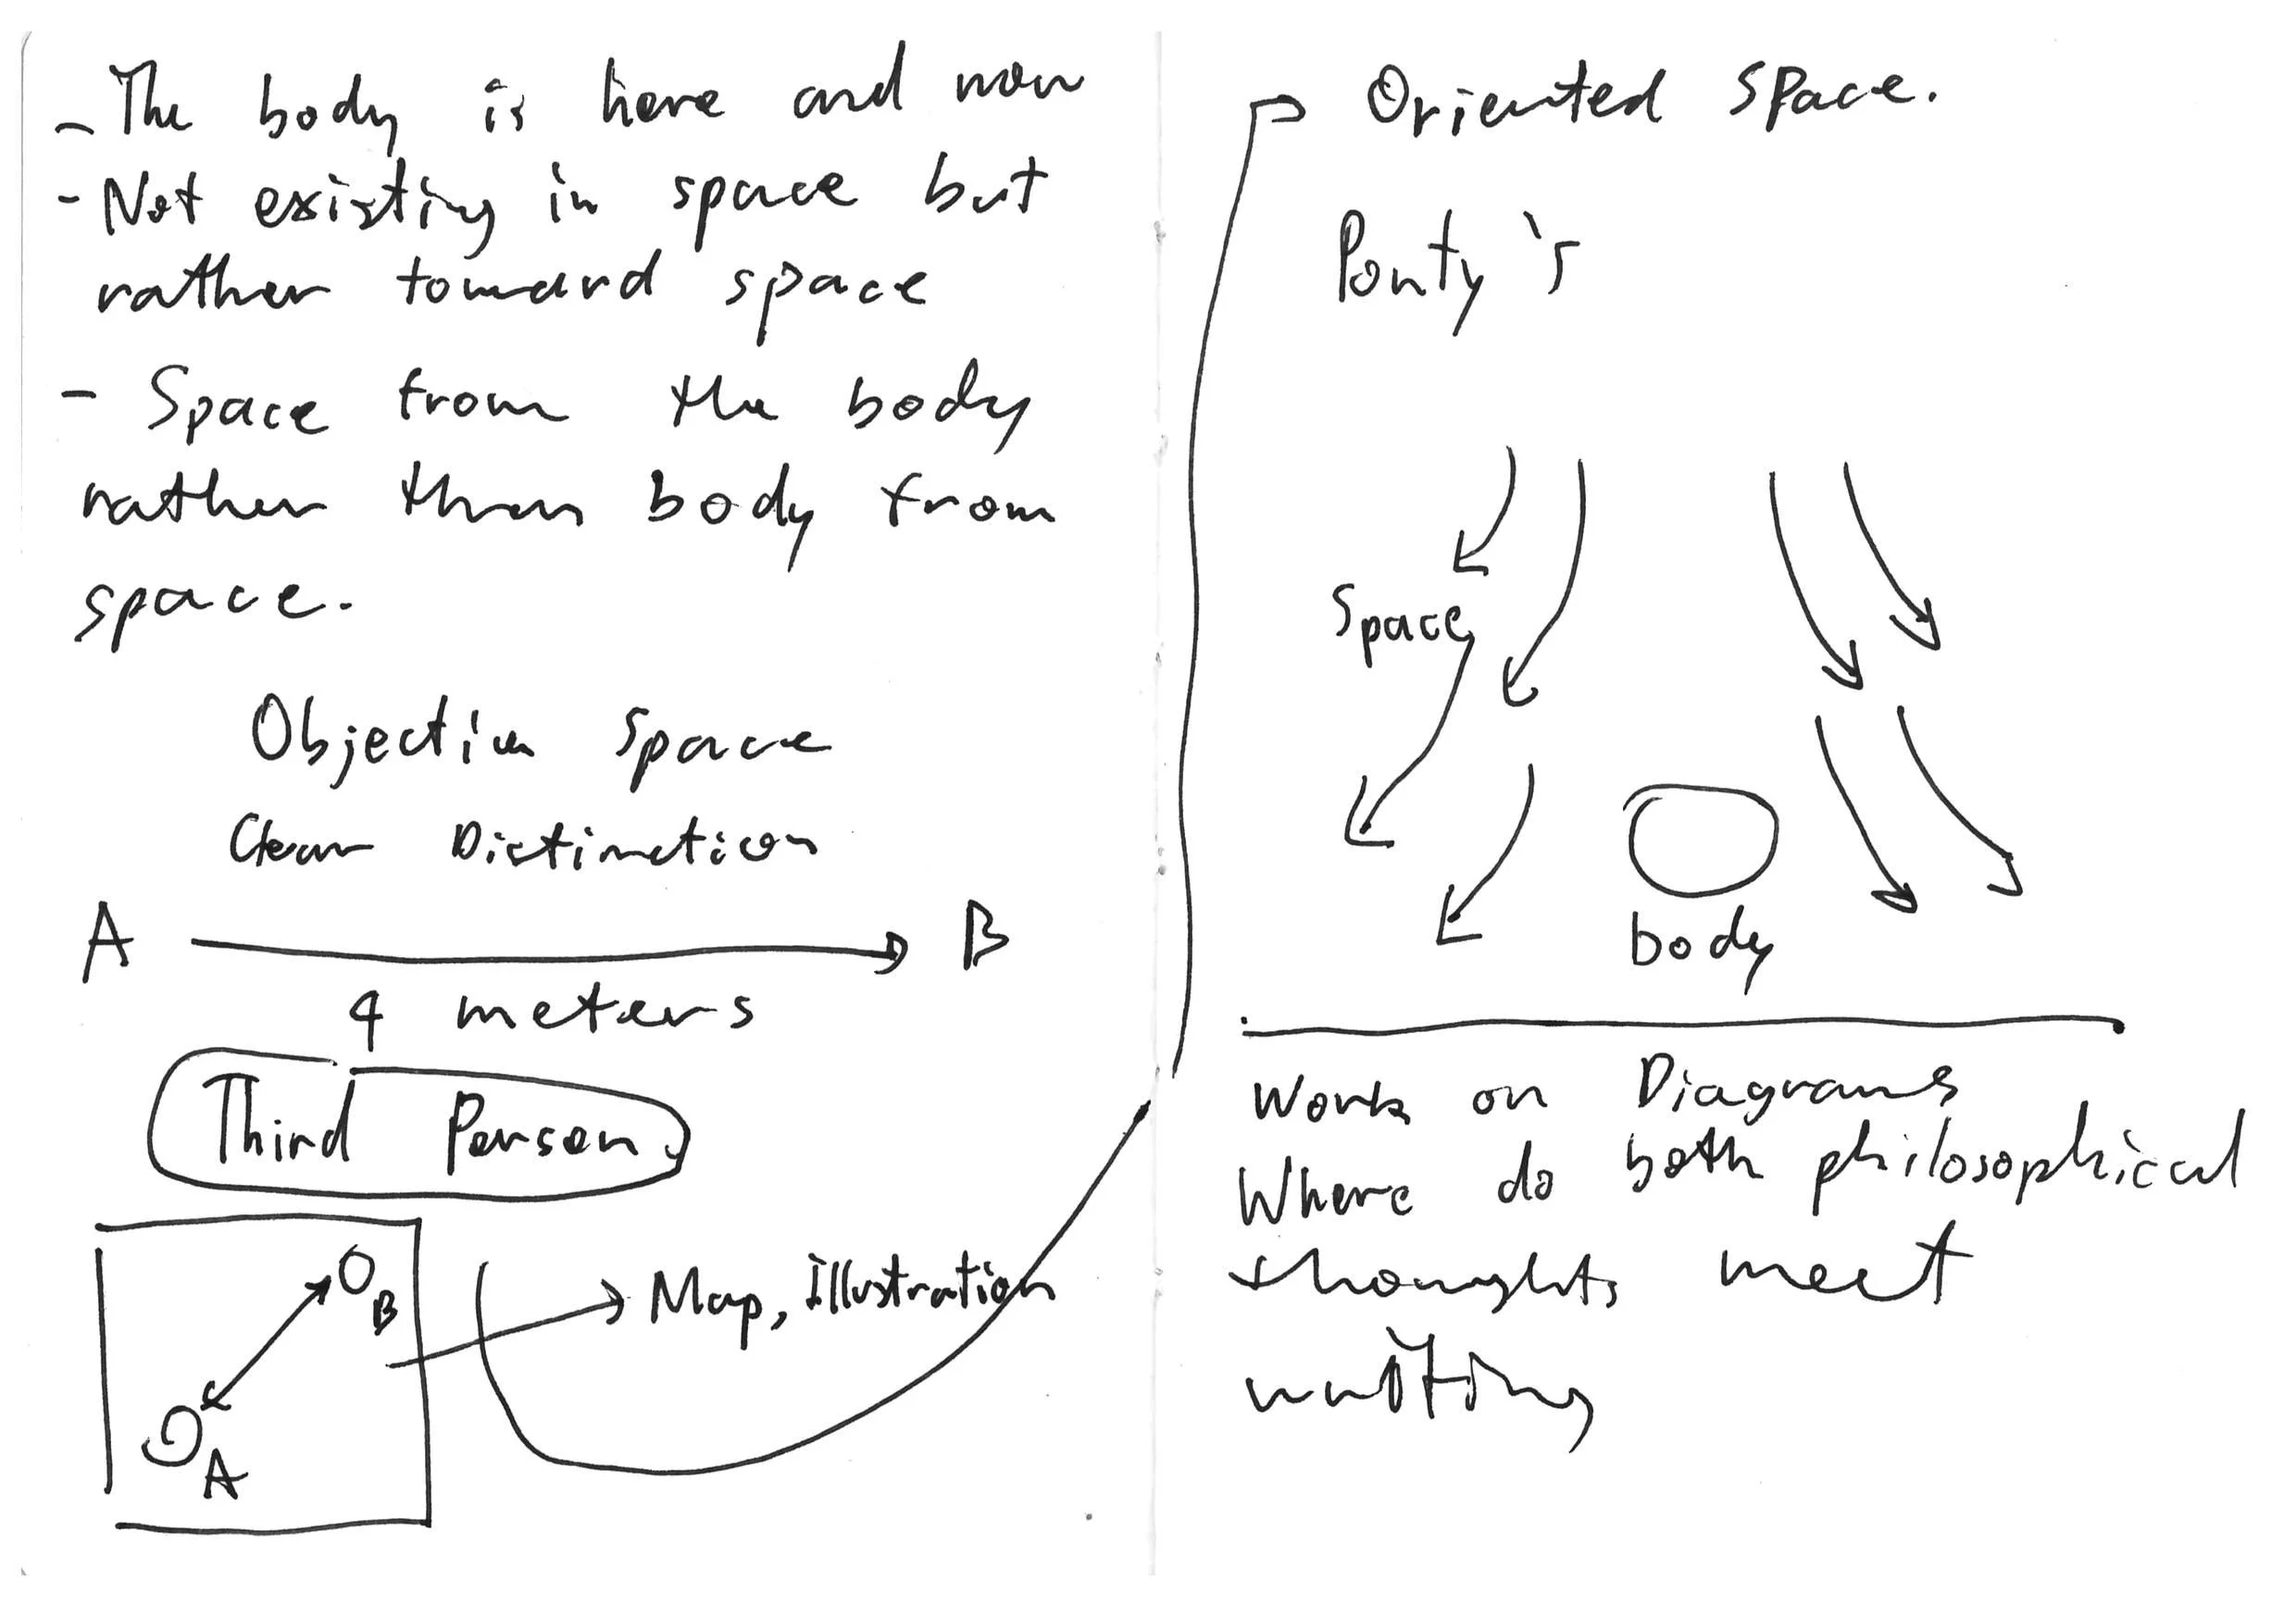 - The body is here and now
- Not existing in space but
rather toward space
- Space from the body
rather than body from
space.
Objective space
Clear Distinction
A → B
4 meters
Third Person
B
A
Map, Illustration
Oriented space.
Ponty's
Space
body
Work on Diagrams
Where do both philosophical
thoughts meet